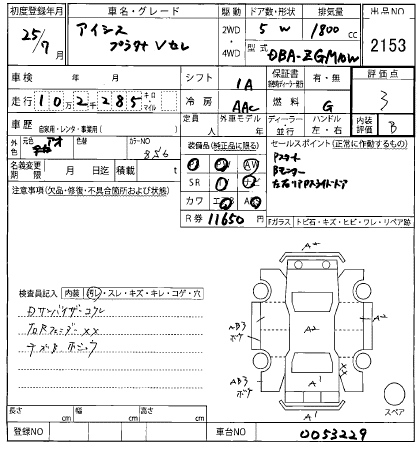 初度登録年月 車名・グレード 駆動 ドア数・形状 排気量 出品NO
25/7月 アイシス プラタナ Vセレ 2WD・4WD 5 W 1800 cc 2153
型式 DBA-ZGM10W
車検 年 月 シフト 1A 保証書 有・無 評価点
走行 102千285 キロ・マイル 冷房 AAC 燃料 G 3
車歴 自家用・レンタ・事業用( ) 定員 人 外車モデル 年 ディーラー 並行 ハンドル 左・右 内装評価 B
外色 元色 アオ 色替 カラーNO 856 装備品(純正品に限る) セールスポイント(正常に動作するもの)
名義変更期限 月 日迄 積載 t PS PW AW Pスタート
注意事項(欠品・修復・不具合箇所および状態) SR ナビ Bモニター
カワ エアB 左右リアPスライドドア
R券 11650 円 Fガラス トビ石・キズ・ヒビ・ワレ・リペア跡
検査員記入 内装 汚レ・スレ・キズ・キレ・コゲ・穴
Dサンバイザーコワレ
左右Rフェンダー XX
A2
A2
A2
AB3 ボケ
AB3 ボケ
XX
A1
A1
スペア
長さ cm 幅 cm 高さ cm
登録NO 車台NO 0053229